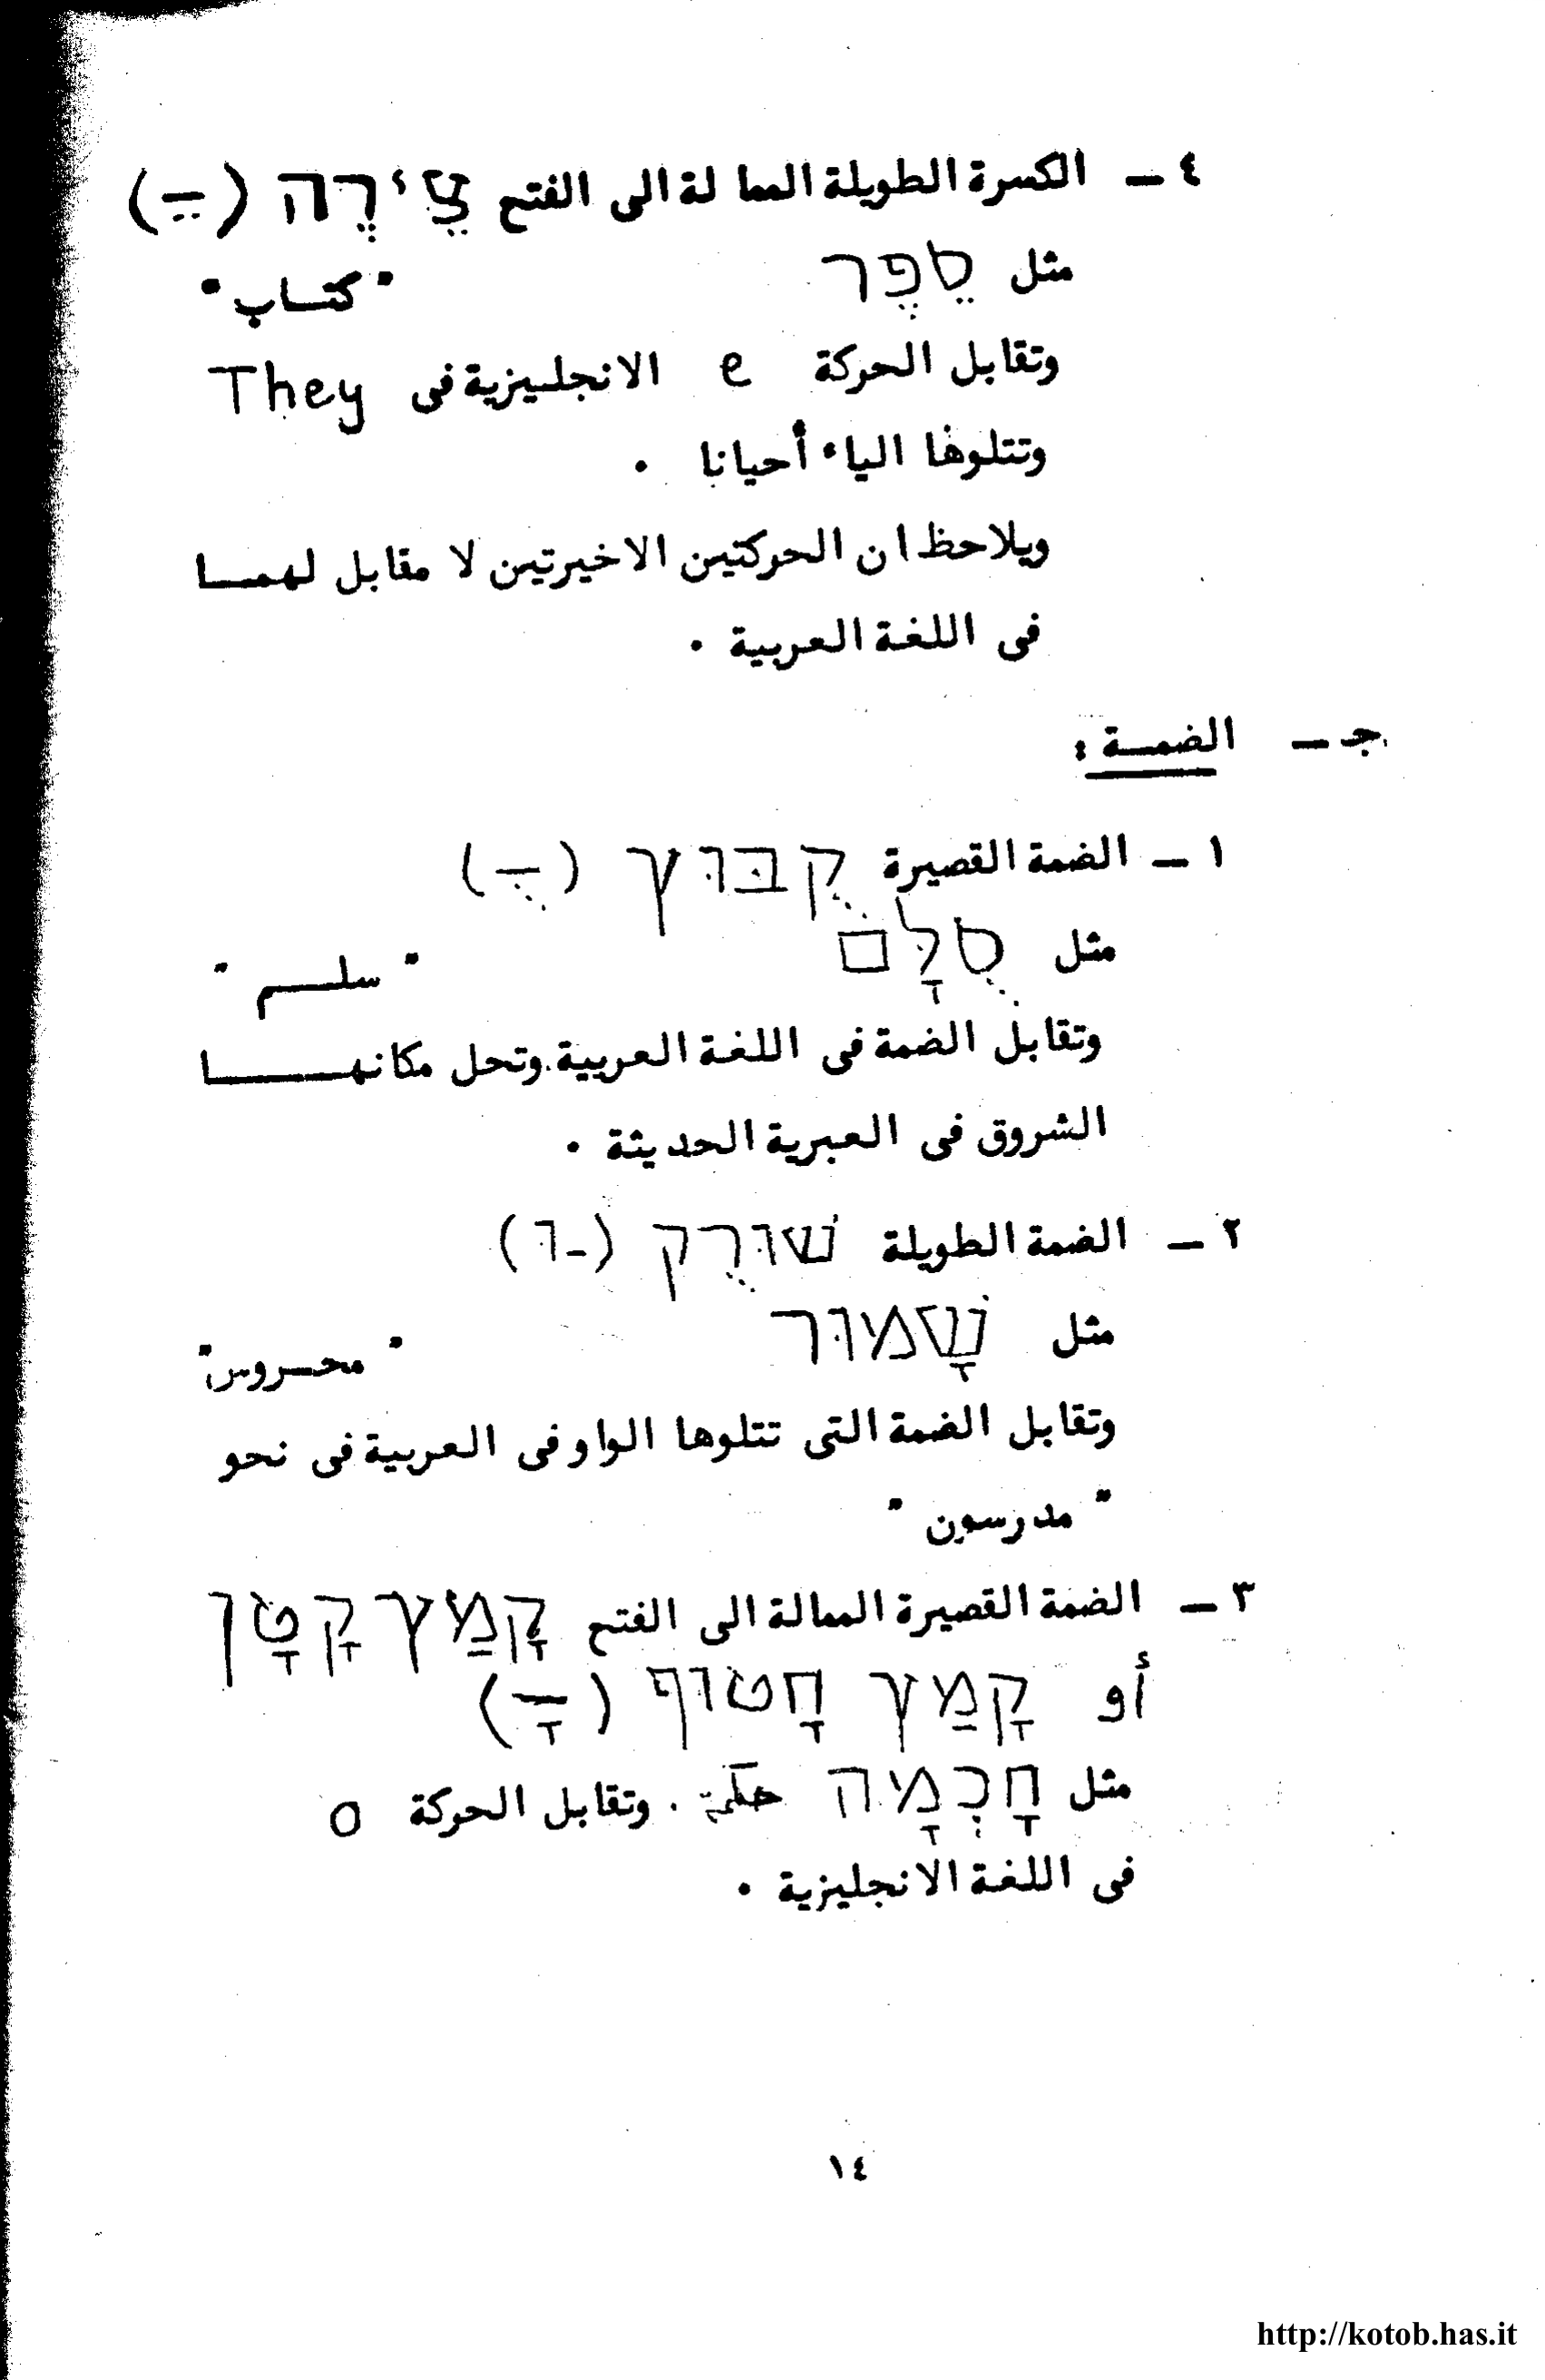 ٤ ـ الكسرة الطويلة الممالة الى الفتح צֵירֶה (ֵ–)
مثل סֵפֶר " كتاب "
وتقابل الحركة e الانجليزية فى They
وتتلوها الياء أحيانا .
ويلاحظ ان الحركتين الاخيرتين لا مقابل لهما
فى اللغة العربية .
جـ ـ الضمة :
١ ـ الضمة القصيرة קֻבּוּץ (ֻ–)
مثل סֻלָּם " سلم "
وتقابل الضمة فى اللغة العربية. وتحل مكانها
الشروق فى العبرية الحديثة .
٢ ـ الضمة الطويلة שׁוּרֻק (-וּ)
مثل שָׁמוּר " محروس "
وتقابل الضمة التى تتلوها الواو فى العربية فى نحو
" مدرسون "
٣ ـ الضمة القصيرة الممالة الى الفتح קָמַץ קָטָן
أو קָמַץ חָטוּף (ָ–)
مثل חָכְמָה حكمة . وتقابل الحركة o
فى اللغة الانجليزية .
١٤
http://kotob.has.it